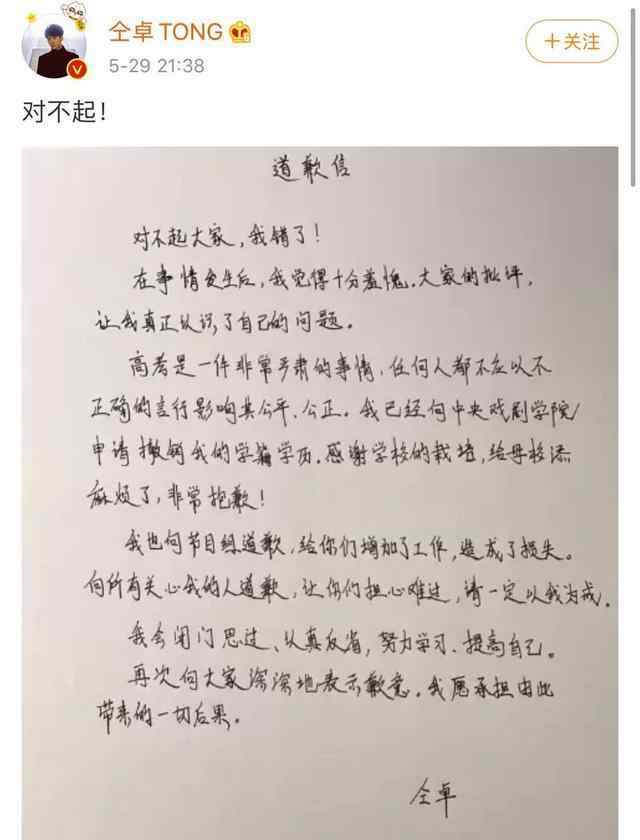 仝卓TONG
5-29 21:38
+关注
对不起!
道歉信
对不起大家,我错了!
在事情发生后,我觉得十分羞愧。大家的批评,
让我真正认识了自己的问题。
高考是一件非常严肃的事情,任何人都不应以不
正确的言行影响其公平、公正。我已经向中央戏剧学院
申请撤销我的学籍学历。感谢学校的栽培,给母校添
麻烦了,非常抱歉!
我也向节目组道歉,给你们增加了工作,造成了损失。
向所有关心我的人道歉,让你们担心难过,请一定以我为戒。
我会闭门思过、认真反省,努力学习、提高自己。
再次向大家深深地表示歉意。我愿承担由此
带来的一切后果。
仝卓